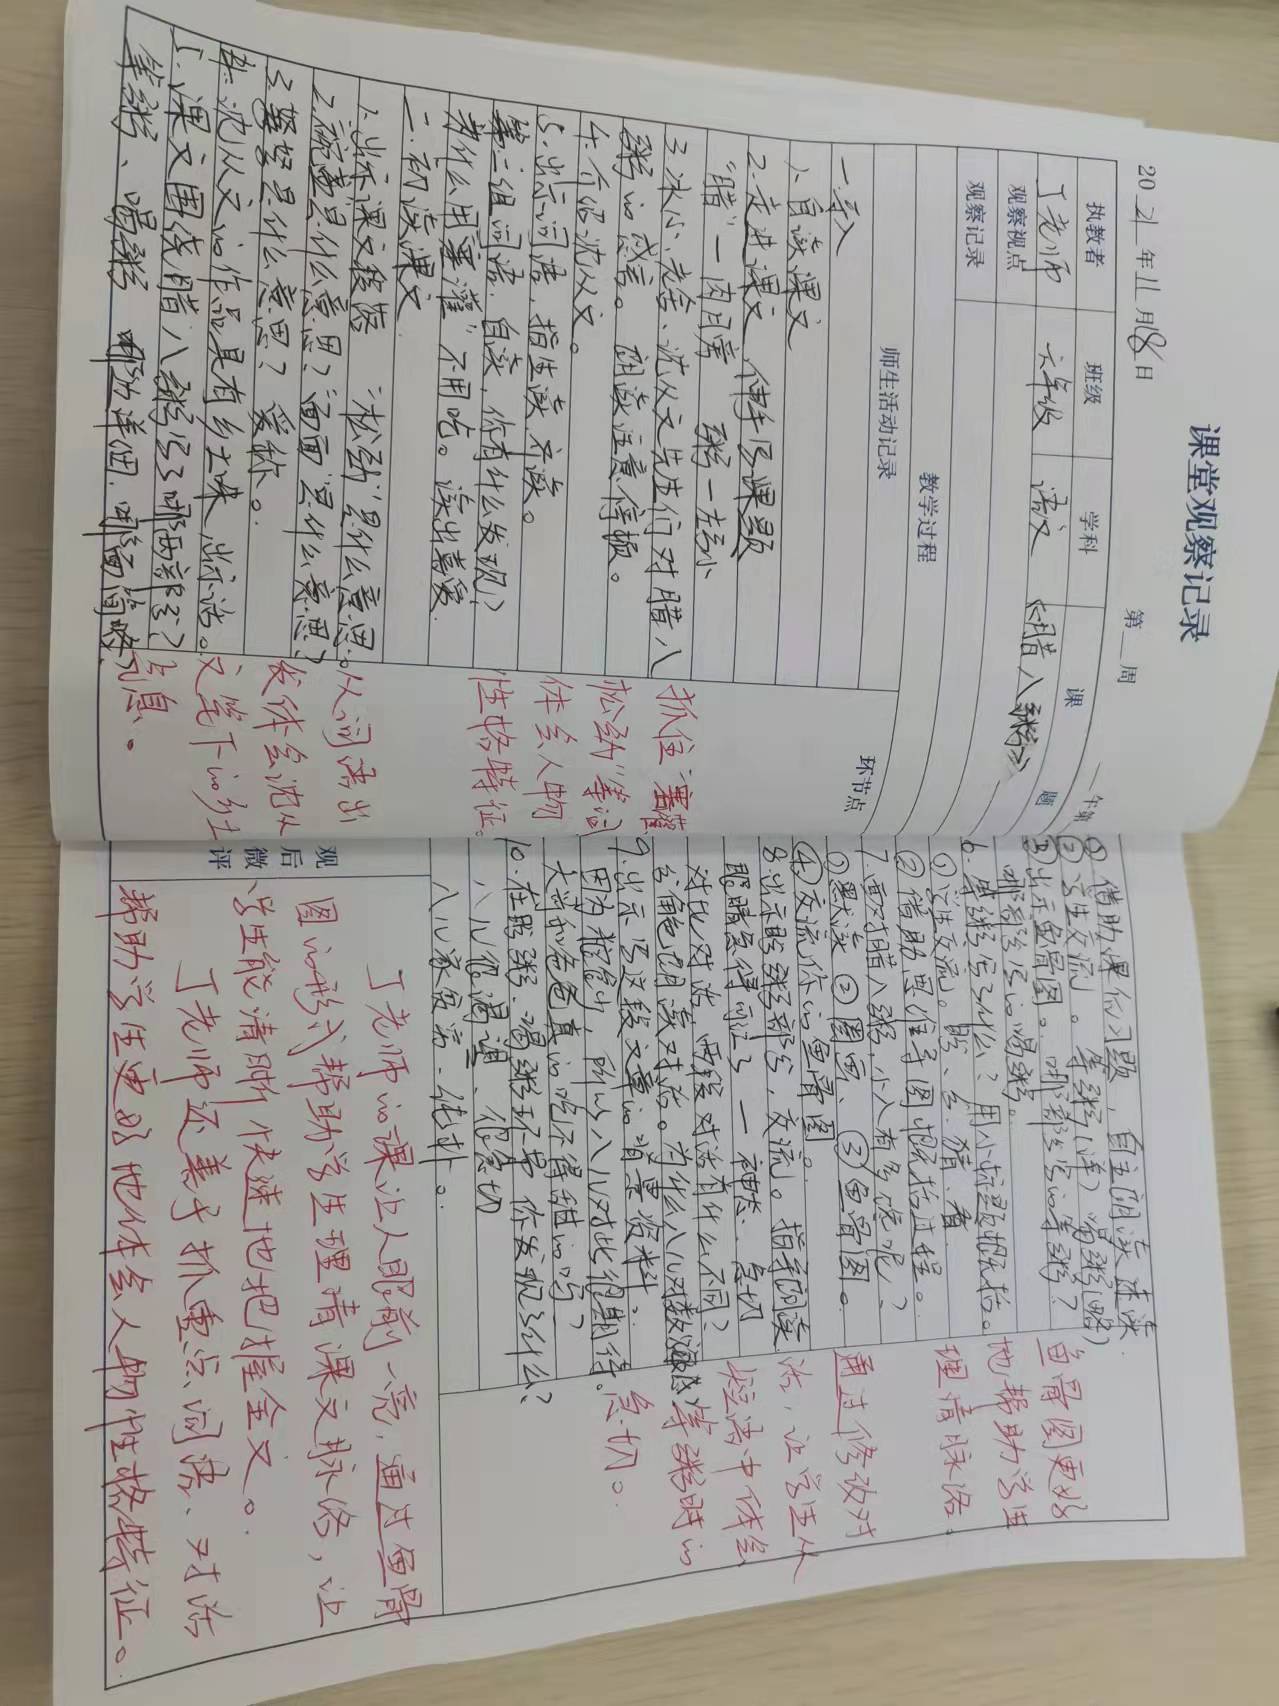 课堂观察记录
2021年11月18日 第 周
执教者 班级 学科 课题
丁老师 六年级 语文 《腊八粥》
观察视点
观察记录
教学过程
师生活动记录 环节点
一.导入
1.自读课文
2.走进课文 伸手写课题
“腊”一肉月旁 粥一左窄
3.冰心、老舍、沈从文先生们对腊八
粥的感言。 朗读注意停顿。
4.介绍沈从文。
5.出示词语,指生读,齐读。
第二组词语,自读,你有什么发现?
为什么用“塞灌”不用吃。读出喜爱
二.初读课文
1.出示课文段落 “松劲”是什么意思。
2.“浓稠”是什么意思?“面面”是什么意思?
3.是什么意思?爱称。
4.沈从文的作品具有乡土味 出示词语。
5.课文围绕腊八粥写了哪两部分?
等粥、喝粥 哪部分详细,哪部分简略。
抓住“塞灌
松劲”等词
体会人物
性格特征。
从词语出
发体会沈从
文笔下的乡土
气息。
①借助课后习题,自主朗读,速读
②学生交流。等粥(详)喝粥(略)
③出示鱼骨图。哪部分写的等粥?
哪部分写的喝粥。
6.等粥写了什么?用小标题概括。
①学生交流。盼、分、猜、看
②借助思维导图概括过程。
7.面对腊八粥,小八有多馋呢?
①默读 ②圈画、③鱼骨图。
④交流你的鱼骨图。
8.出示盼粥部分,交流。指导朗读
眼睛急得 — 神态、急切
对比对话,两段对话有什么不同?
分角色朗读对话。为什么八儿对数
9.出示了这段文章的背景资料:
因为粮食少,所以八儿对此很期待。
夫妇和爸爸真的吃不得甜的吗?
10.在盼粥、喝粥环节,你发现了什么?
八儿很渴望、很急切
八儿家贫穷、纯朴。
鱼骨图更好
地帮助学生
理清脉络。
通过修改对
话,让学生从
短语中体会
等粥时的
急切。
观后微评
丁老师的课让人眼前一亮,通过鱼骨
图的形式帮助学生理清课文脉络,让
学生能清晰快速地把握全文。
丁老师还善于抓重点词语、对话
帮助学生更好地体会人物性格特征。